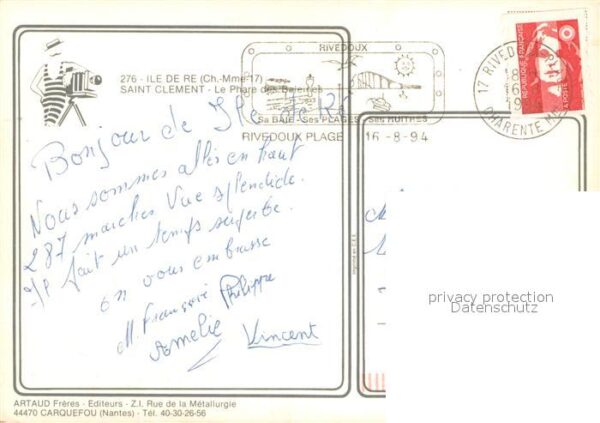 276 - ILE DE RE (Ch.-Mme 17)
SAINT CLEMENT - Le Phare des Baleines
RIVEDOUX
Sa BAIE - Ses PLAGES - Ses HUITRES
RIVEDOUX PLAGE 16-8-94
17 RIVEDOUX
CHARENTE
REPUBLIQUE FRANÇAISE
LA POSTE
Bonjour de
Nous sommes allés en haut
287 marches Vue splendide.
Il fait un temps superbe.
on vous embrasse
M. Philippe
Amelie Vincent
privacy protection
Datenschutz
ARTAUD Frères - Editeurs - Z.I. Rue de la Métallurgie
44470 CARQUEFOU (Nantes) - Tél. 40-30-26-56